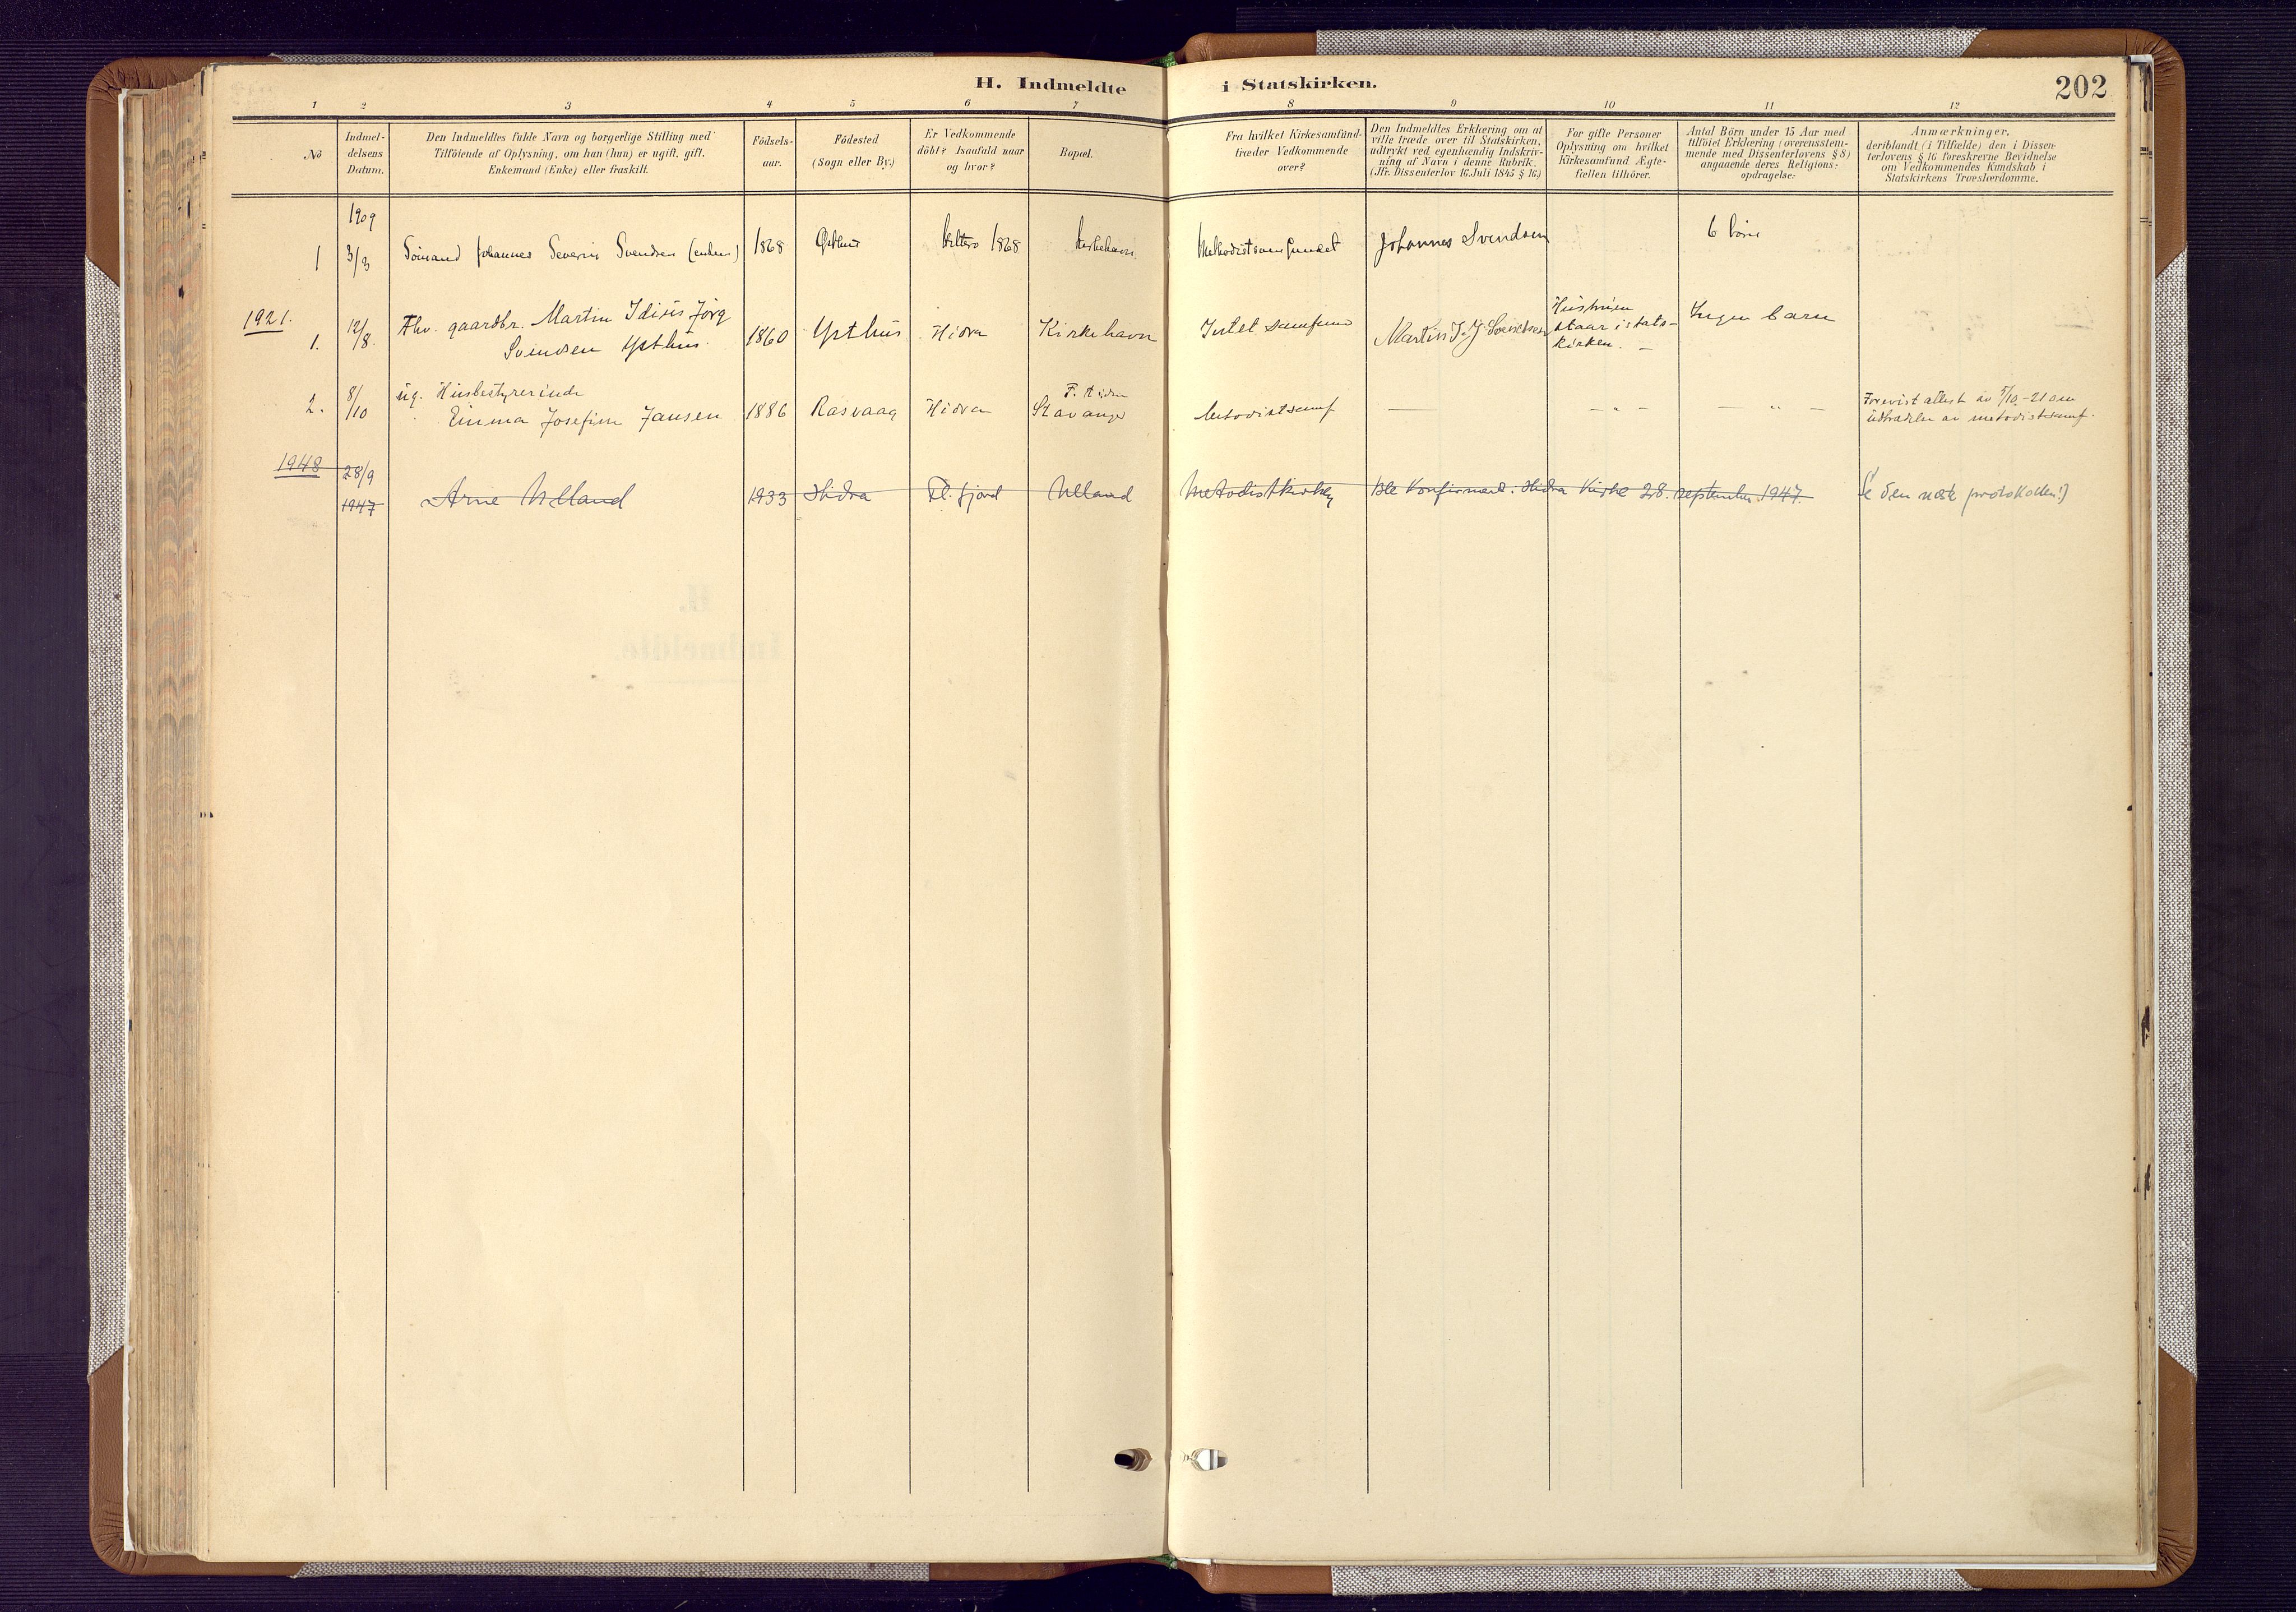 H. Indmeldte i Statskirken.
202
1 2 3 4 5 6 7 8 9 10 11 12
No
Indmel-
delsens
Datum.
Den Indmeldtes fulde Navn og borgerlige Stilling med
Tilföiende af Oplysning, om han (hun) er ugift, gift,
Enkemand (Enke) eller fraskilt.
Födsels-
aar.
Födested
(Sogn eller By.)
Er Vedkommende
döbt? Isaafald naar
og hvor?
Bopæl.
Fra hvilket Kirkesamfund
træder Vedkommende
over?
Den Indmeldtes Erklæring om at
ville træde over til Statskirken,
udtrykt ved egenhændig Indskriv-
ning af Navn i denne Rubrik.
(Jfr. Dissenterlov 16 Juli 1845 § 16.)
For gifte Personer
Oplysning om hvilket
Kirkesamfund Ægte-
fællen tilhörer.
Antal Börn under 15 Aar med
tilföiet Erklæring (overensstem-
mende med Dissenterlovens § 8)
angaaende deres Religions-
opdragelse.
Anmærkninger,
deriblandt (i Tilfælde) den i Dissen-
terlovens § 16 foreskrevne Bevidnelse
om Vedkommendes Kundskab i
Statskirkens Troeslærdomme.
1909
1 3/3 Sömand Johannes Severin Svendsen 1868 Østhus Hitterö 1868 Kirkehavn Methodistsamfundet Johannes Svendsen 6 börn
1921.
1. 12/8. Fhv. gaardbr. Martin Idisis Jörg
Svendsen Ysthus. 1860 Ysthus Hidra Kirkehavn Intet samfund Martin J. J. Svendsen
Hustruen
staar i stats-
kirken. —
Ingen barn
2. 8/10 ug. Husbestyrerinde
Emma Josefine Jansen 1886 Rasvaag Hidra
F. Hidra
Stavanger
Metodistsamf — — " — — " —
Forevist attest av 5/10-21 om
utträdelse av metodistsamf.
1948 28/9
1947 Arne Ulland 1933 Hidra Fl. fjord Ulland Metodistkirken Ble konfirmert i Hidra Kirke 28. september 1947. (Se den næste protokollen!)